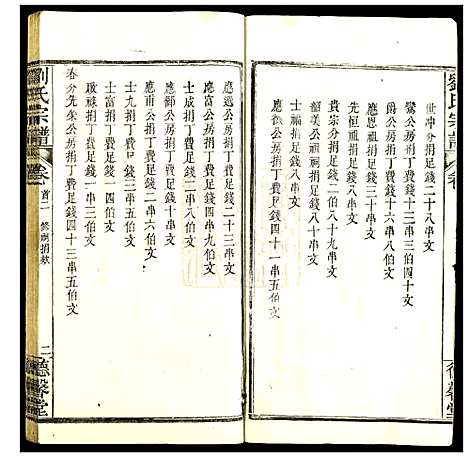 劉氏宗譜
卷
德馨堂
世冲分捐足錢二十八串文
鸞公房捐丁費足錢十三串伯四十文
爵公房捐丁費足錢十串文
應恩祠捐丁費足錢八串文
先恒祠捐足錢八十串文
貴宗分捐錢二伯八十九串文
韶美公祖祠捐足錢八十串文
應徵公房捐丁費足錢四十一串五伯文
應選公房捐丁費足錢二十三串文
應富公房捐丁費足錢四串九伯文
士賢公捐丁費足錢八串文
應甫公捐丁費足錢十六伯文
士九捐丁費足錢三串五伯文
士富捐丁費足錢二串伯文
啟祿捐丁費足錢一串三伯文
春分先泰公房捐丁費足錢四十三串五伯文
劉氏宗譜
卷
首二
修譜捐款
二
德馨堂